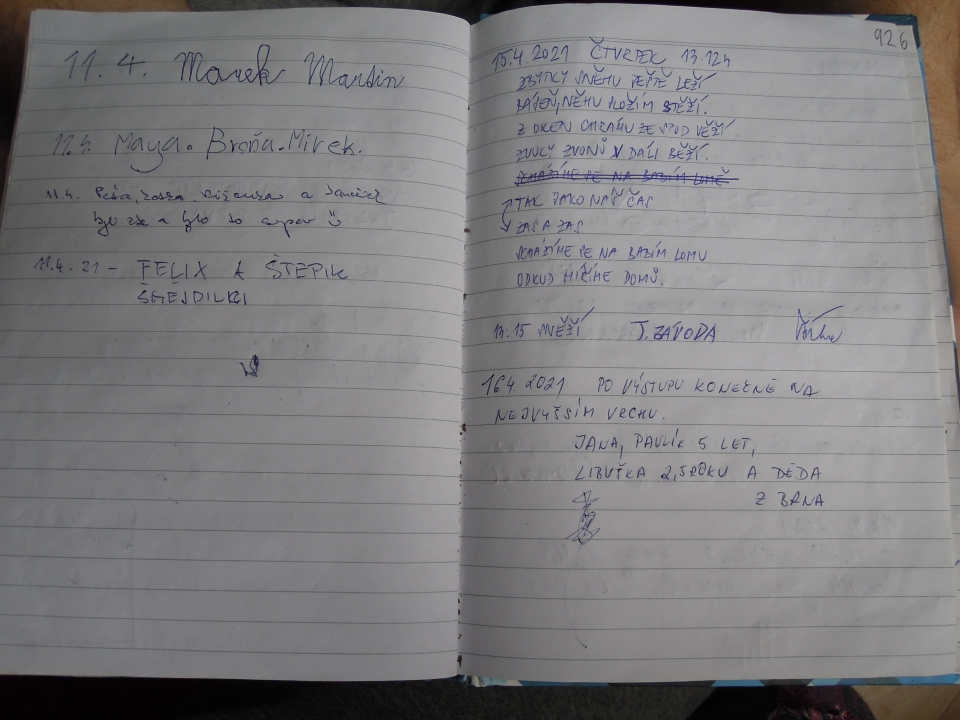 11. 4. Marek Martin
12.4. Maya. Broňa. Mirek.
11.4. Péťa, a Janáček
bylo to super
11.4. 21 - FELIX A ŠTEPIK
ŠMEJDILKCI
926
15.4.2021 ČTVRTEK 13.12h
ZBYTKY SNĚHU JEŠTĚ LEŽÍ
BÁSEŇ, NĚHU SLOŽÍM STĚŽÍ.
Z OKEN CHRÁMU ZE SPOD VĚŽÍ
ZVUKY ZVONŮ V DÁLI BĚŽÍ.
SCHÁZÍME SE NA BABÍM LOMĚ
TAK JAKO NÁŠ ČAS
ZAS A ZAS
SCHÁZÍME SE NA BABÍM LOMU
ODKUD MÍŘÍME DOMŮ.
13.15 SNĚŽÍ J. ZÁVODA
16.4 2021 PO VÝSTUPU KONEČNĚ NA
NEJVYŠSÍM VRCHU.
JANA, PAVLÍK 5 LET,
LIBUŠKA 2,5ROKU A DĚDA
Z BRNA